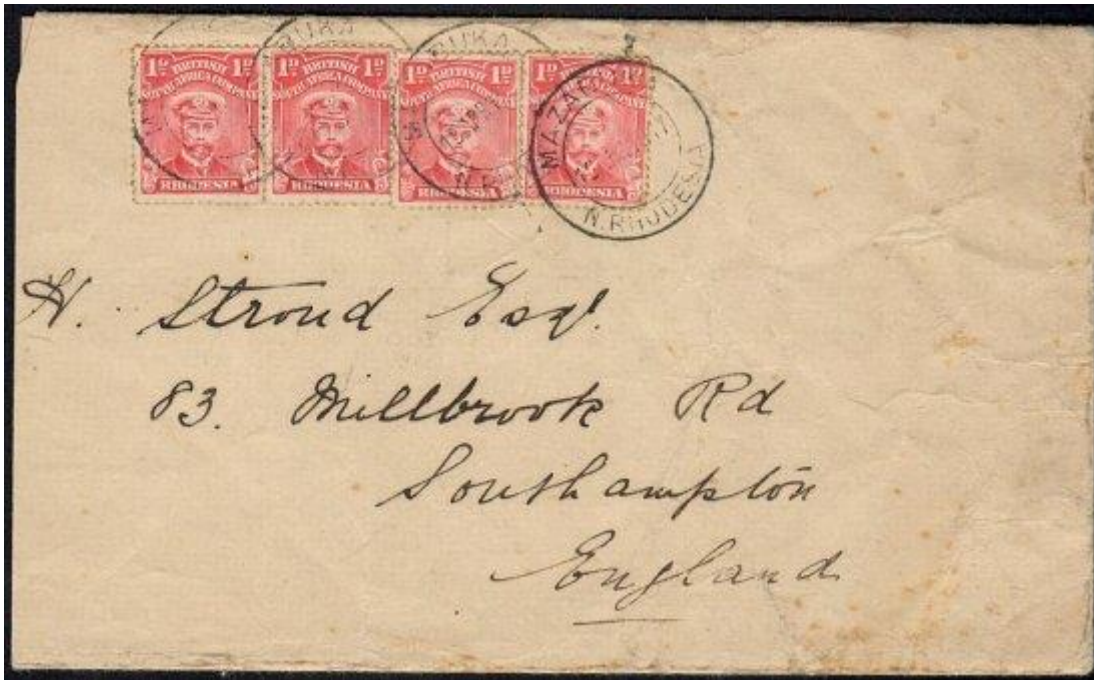 1D BRITISH 1D
SOUTH AFRICA COMPANY
RHODESIA
1D BRITISH 1D
SOUTH AFRICA COMPANY
RHODESIA
1D BRITISH 1D
SOUTH AFRICA COMPANY
RHODESIA
1D 1D
RHODESIA
N. RHODESIA
H. Stroud Esqr.
83. Millbrook Rd
Southampton
England